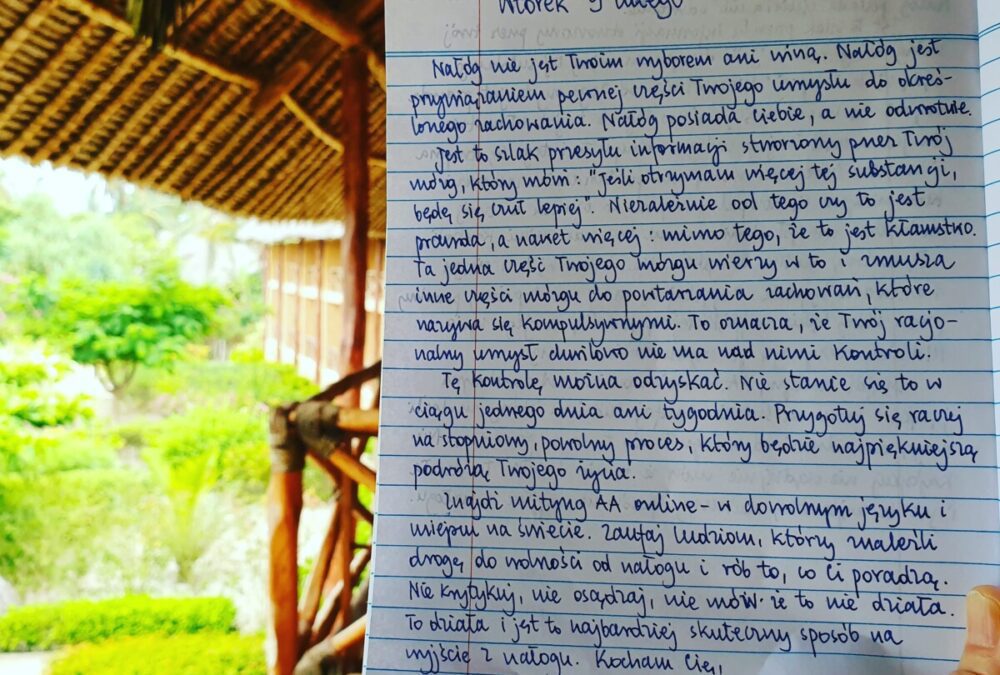 Wtorek 9 lutego
Nałóg nie jest Twoim wyborem ani winą. Nałóg jest
przywiązaniem pewnej części Twojego umysłu do okreś-
lonego zachowania. Nałóg posiada Ciebie, a nie odwrotnie.
Jest to szlak przesyłu informacji stworzony przez Twój
mózg, który mówi: "Jeśli otrzymam więcej tej substancji,
będę się czuł lepiej". Niezależnie od tego czy to jest
prawda, a nawet więcej: mimo tego, że to jest kłamstwo.
Ta jedna część Twojego mózgu wierzy w to i zmusza
inne części mózgu do powtarzania zachowań, które
nazywa się kompulsywnymi. To oznacza, że Twój racjo-
nalny umysł chwilowo nie ma nad nimi kontroli.
Tę kontrolę można odzyskać. Nie stanie się to w
ciągu jednego dnia ani tygodnia. Przygotuj się raczej
na stopniowy, powolny proces, który będzie najpiękniejszą
podróżą Twojego życia.
Znajdź mityng AA online - w dowolnym języku i
miejscu na świecie. Zaufaj ludziom, którzy znaleźli
drogę do wolności od nałogu i rób to, co Ci poradzą.
Nie krytykuj, nie osądzaj, nie mów że to nie działa.
To działa i jest to najbardziej skuteczny sposób na
wyjście z nałogu. Kocham Cię,